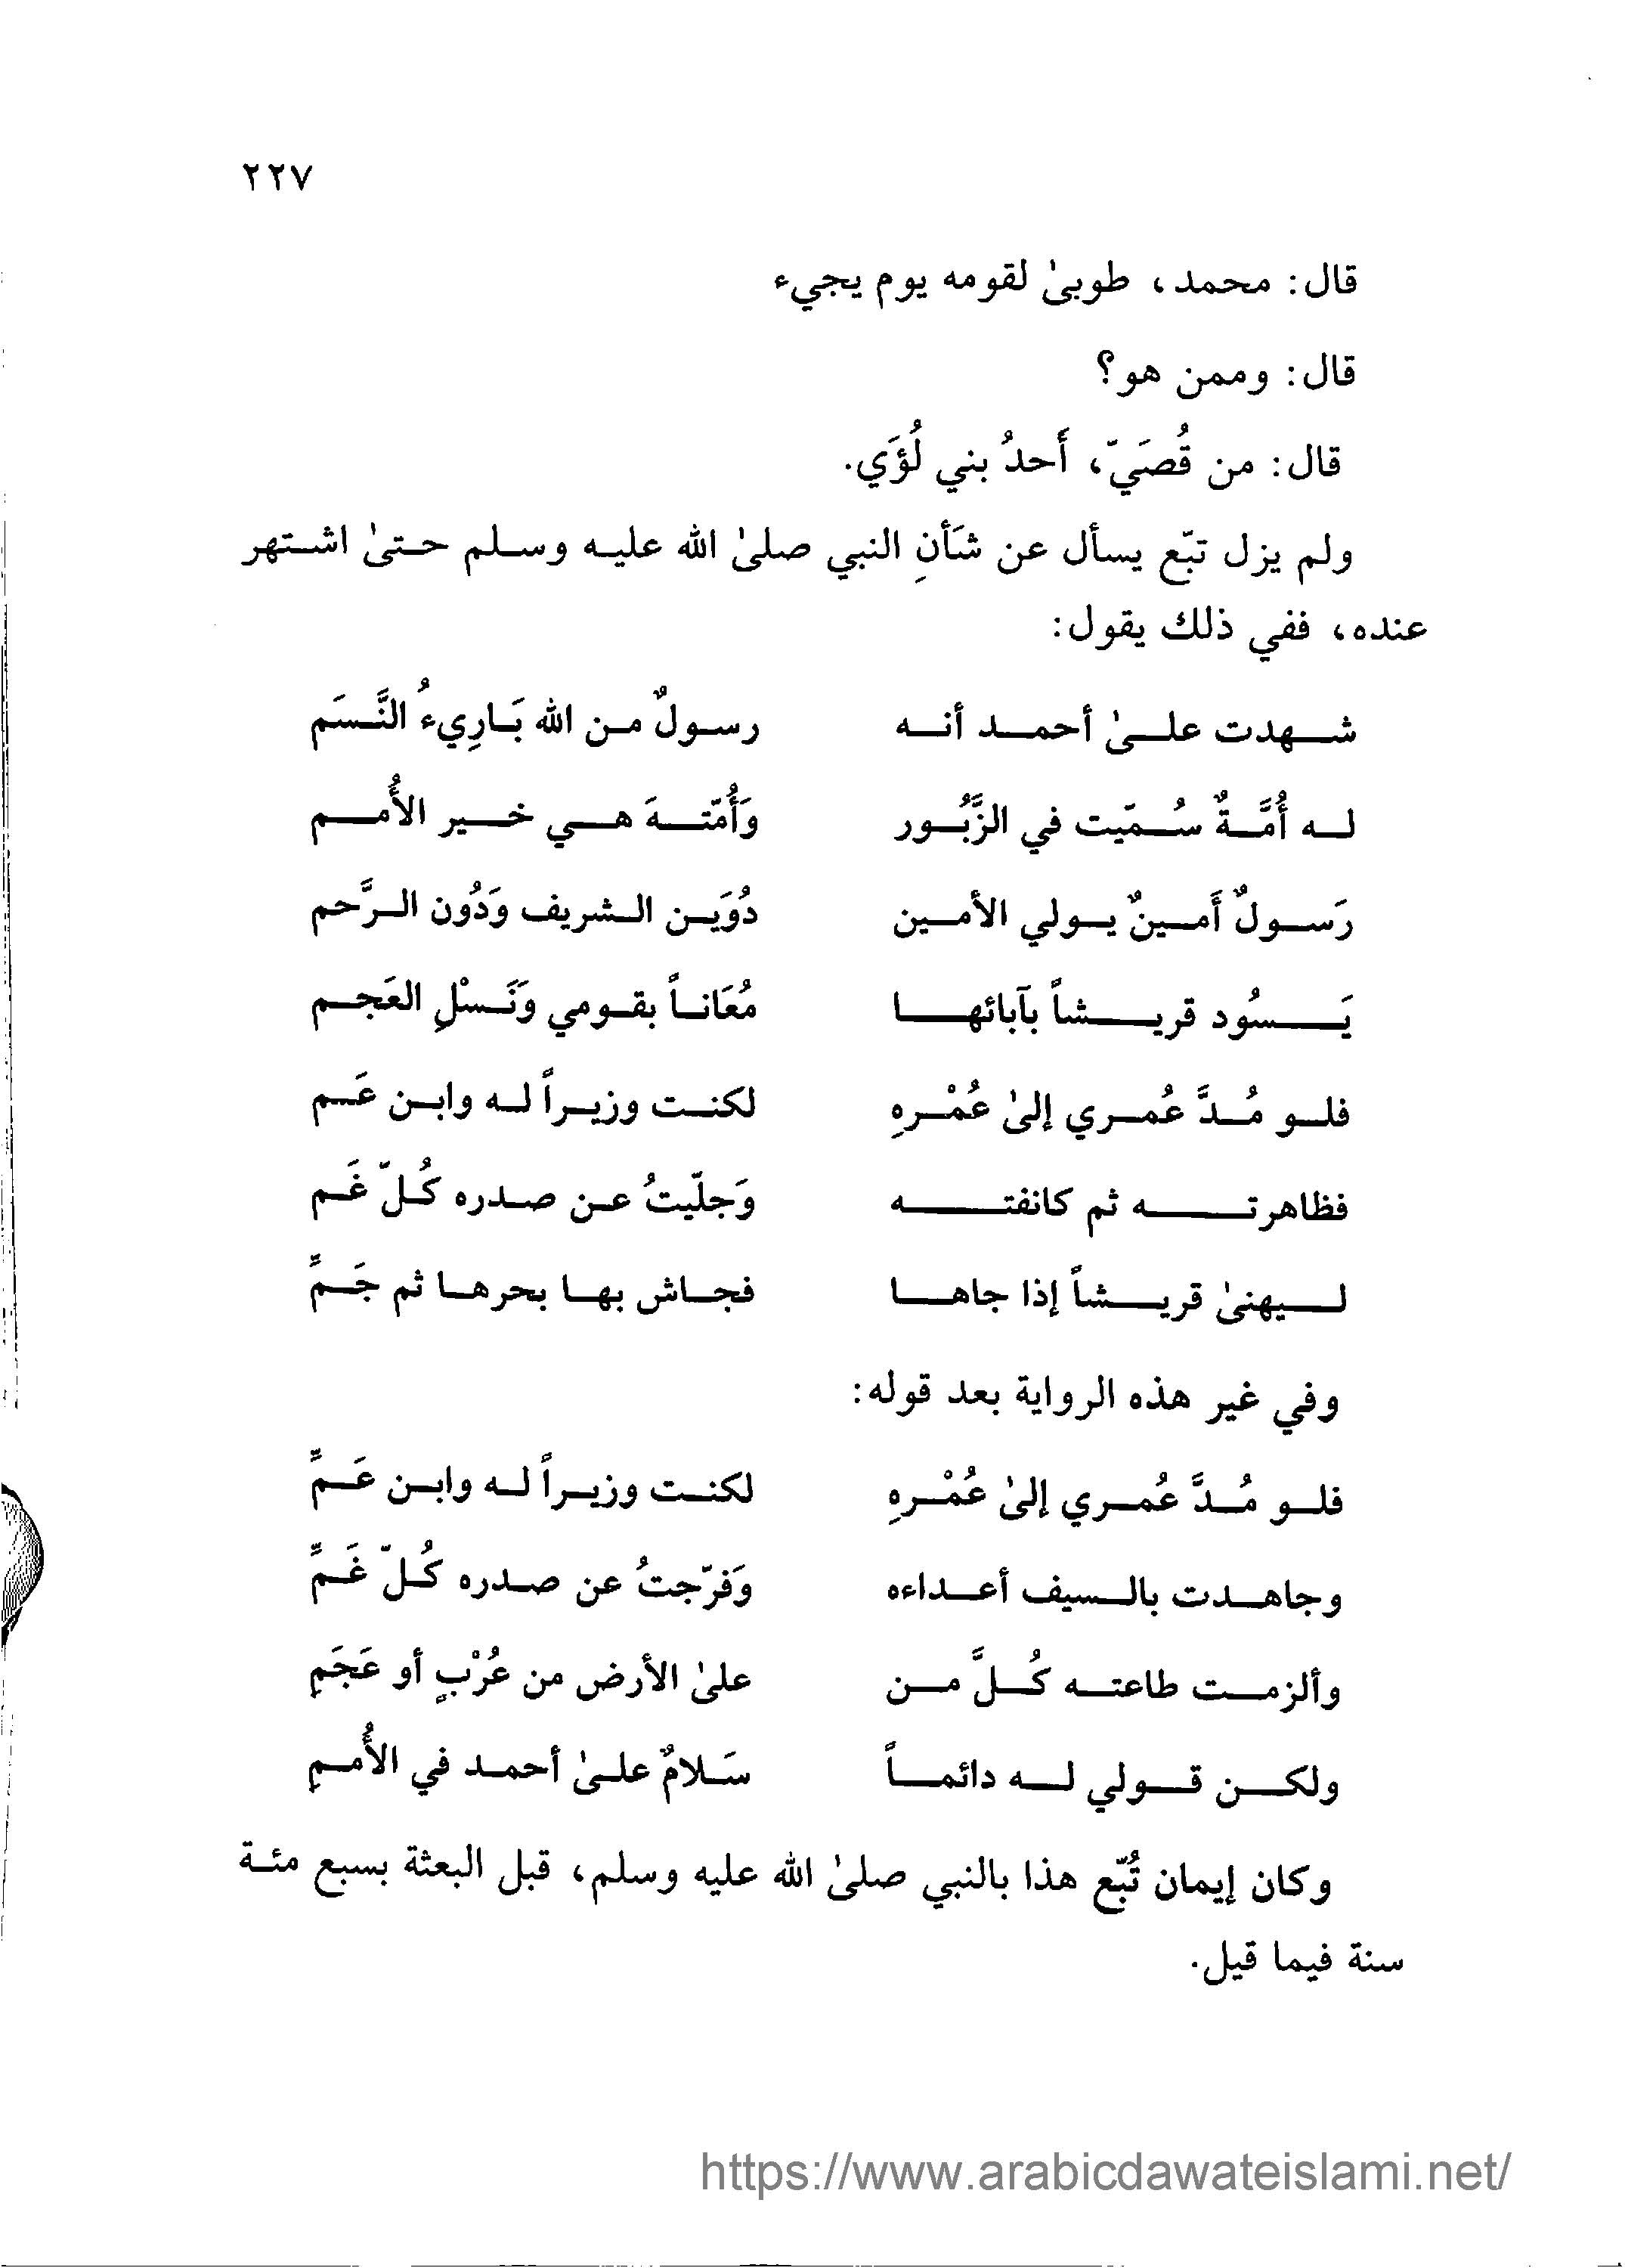 ٢٢٧
قال: محمد، طوبىٰ لقومه يوم يجيء
قال: وممن هو؟
قال: من قُصَيّ، أَحدُ بني لُؤَي.
ولم يزل تبّع يسأل عن شَأنِ النبي صلىٰ الله عليه وسلم حتىٰ اشتهر
عنده، ففي ذلك يقول:
شهدت علىٰ أحمد أنه رسولٌ من الله بَارِيءُ النَّسَم
له أُمَّةٌ سُمّيت في الزَّبُور وَأُمّتهَ هي خير الأُمم
رَسولٌ أَمينٌ يولي الأمين دُوَين الشريف وَدُون الرَّحم
يَسُود قريشاً بآبائها مُعَاناً بقومي وَنَسْلِ العَجم
فلو مُدَّ عُمري إلىٰ عُمْرهِ لكنت وزيراً له وابن عَم
فظاهرته ثم كانفته وَجلّيتُ عن صدره كُلّ غَم
ليهنىٰ قريشاً إذا جاها فجاش بها بحرها ثم جَمٍّ
وفي غير هذه الرواية بعد قوله:
فلو مُدَّ عُمري إلىٰ عُمْرهِ لكنت وزيراً له وابن عَمٍّ
وجاهدت بالسيف أعداءه وَفرّجتُ عن صدره كُلّ غَمٍّ
وألزمت طاعته كُلَّ من علىٰ الأرض من عُرْبٍ أو عَجَمِ
ولكن قولي له دائماً سَلامٌ علىٰ أحمد في الأُممِ
وكان إيمان تُبّع هذا بالنبي صلىٰ الله عليه وسلم، قبل البعثة بسبع مئة
سنة فيما قيل.
https://www.arabicdawateislami.net/